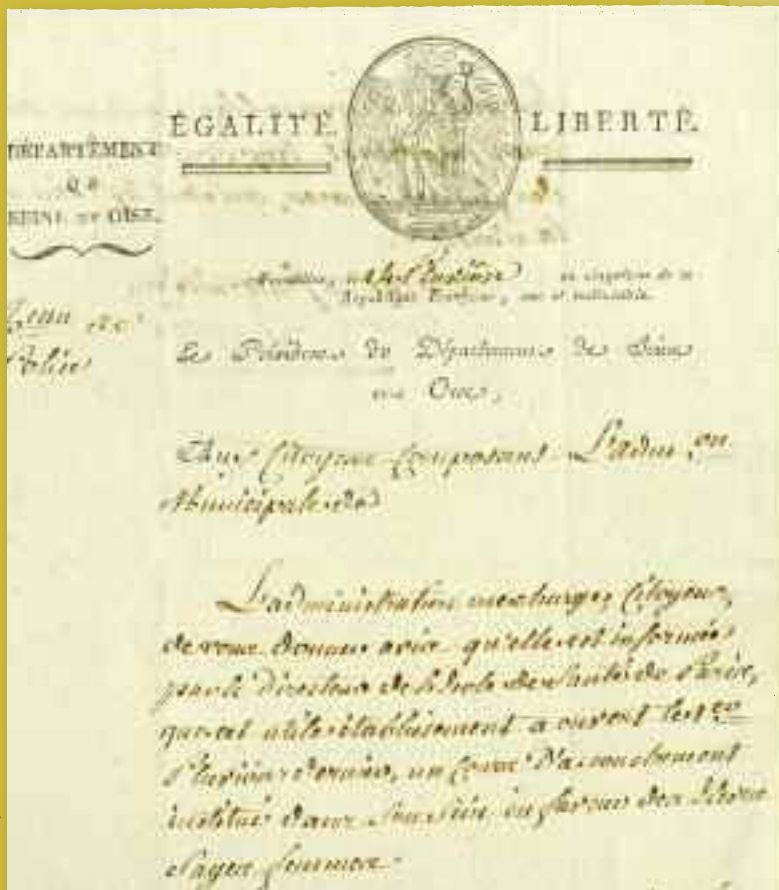 ÉGALITÉ. LIBERTÉ.
DÉPARTEMENT
DE
SEINE ET OISE.
Versailles, Pluviôse an cinquième de la
République Française, une et indivisible.
Le Président du Département de Seine
et Oise,
Aux Citoyens Composant L'adm.on
Municipale de
L'administration me charge, Citoyens,
de vous donner avis qu'elle est informée
par le directeur de l'école de Santé de Paris,
que cet utile établissement a ouvert le 1er
Pluviôse dernier, un Cours D'accouchement
institué dans Son Sein en faveur des Elèves
Sages femmes.